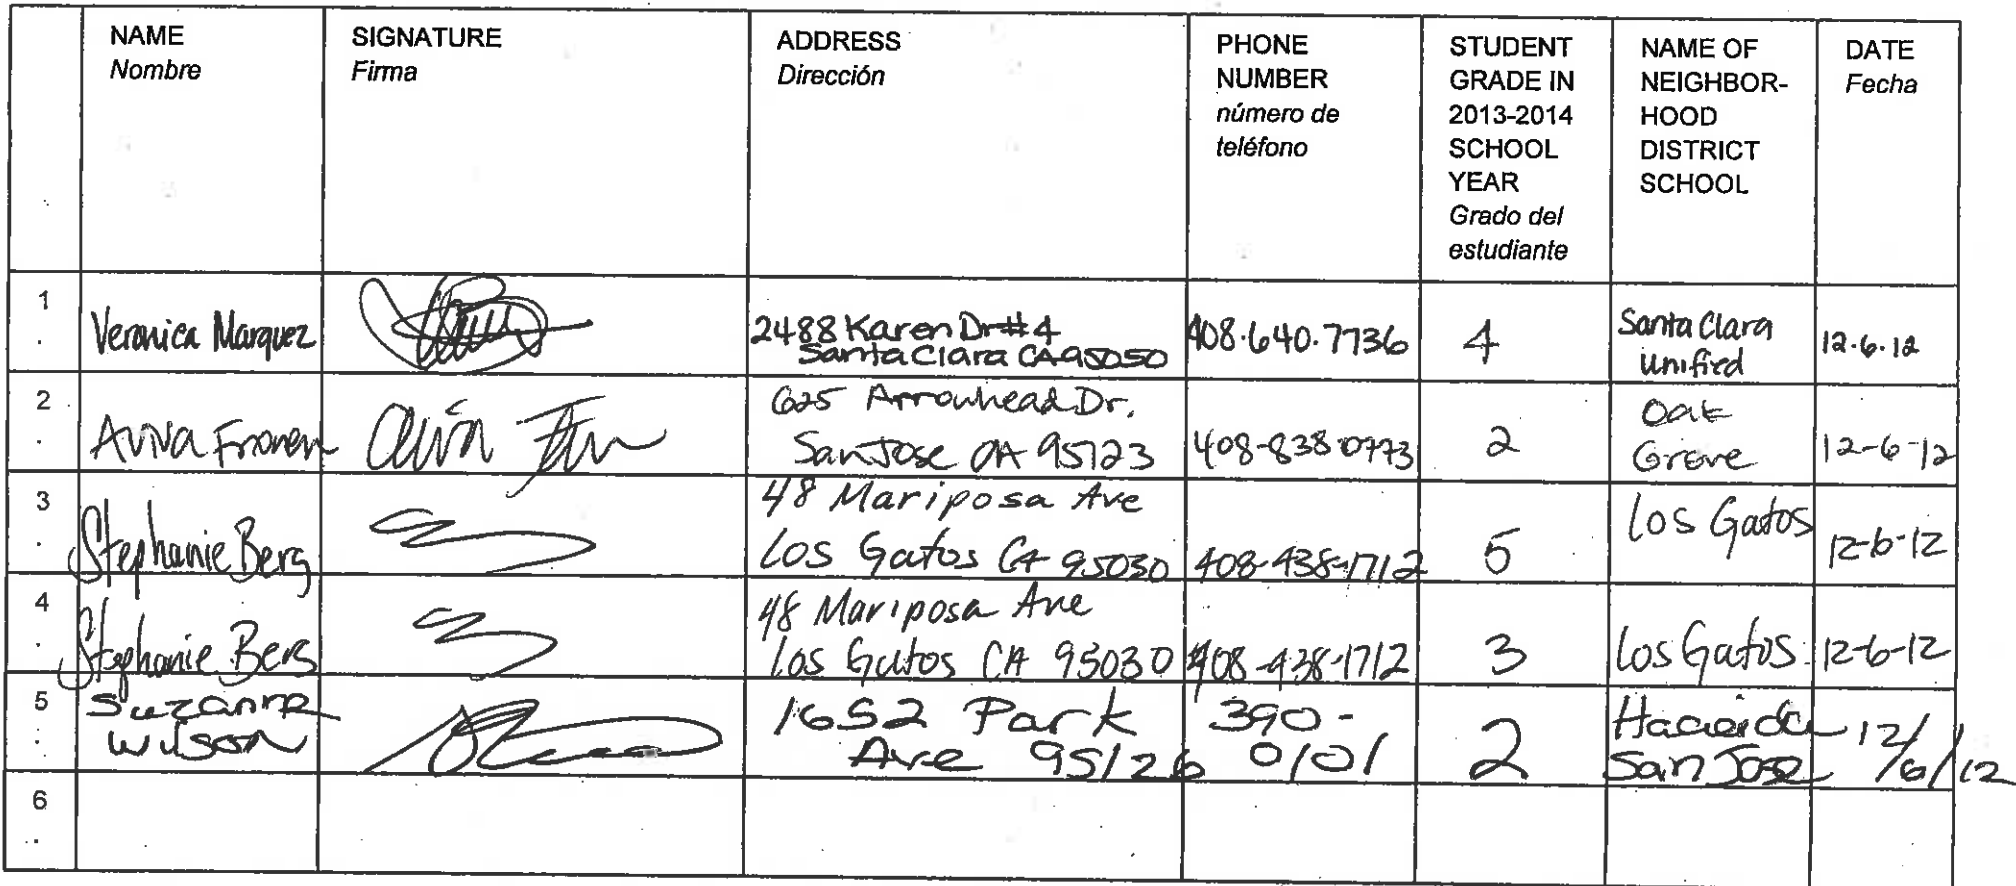 NAME
Nombre
SIGNATURE
Firma
ADDRESS
Dirección
PHONE
NUMBER
número de
teléfono
STUDENT
GRADE IN
2013-2014
SCHOOL
YEAR
Grado del
estudiante
NAME OF
NEIGHBOR-
HOOD
DISTRICT
SCHOOL
DATE
Fecha
1
.
Veronica Marquez
2488 Karen Dr #4
Santa Clara CA 95050
408.640.7736
4
Santa Clara
Unified
12.6.12
2
.
Aviva
625 Arrowhead Dr.
San Jose CA 95123
408-838-0773
2
Oak
Grove
12-6-12
3
.
Stephanie Berg
48 Mariposa Ave
Los Gatos CA 95030
408-438-1712
5
Los Gatos
12-6-12
4
.
Stephanie Berg
48 Mariposa Ave
Los Gatos CA 95030
408-438-1712
3
Los Gatos
12-6-12
5
.
Suzanne
Wilson
1652 Park
Ave 95126
390-
0101
2
San Jose
12/6/12
6
.